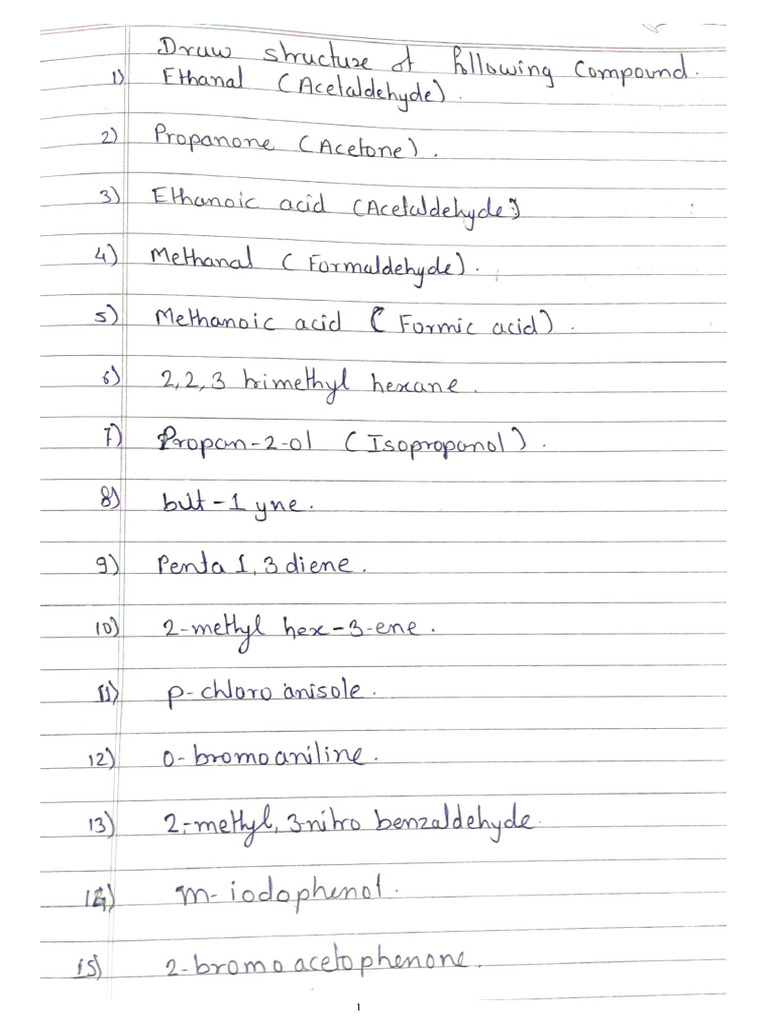 Draw structure of following compound.
1) Ethanal (Acetaldehyde).
2) Propanone (Acetone).
3) Ethanoic acid (Acetaldehyde)
4) Methanal (Formaldehyde).
5) Methanoic acid (Formic acid).
6) 2,2,3 trimethyl hexane.
7) Propan-2-ol (Isopropanol).
8) but-1 yne.
9) Penta 1,3 diene.
10) 2-methyl hex-3-ene.
11) p-chloro anisole.
12) o-bromoaniline.
13) 2-methyl, 3-nitro benzaldehyde.
14) m-iodophenol.
15) 2-bromo acetophenone.
1